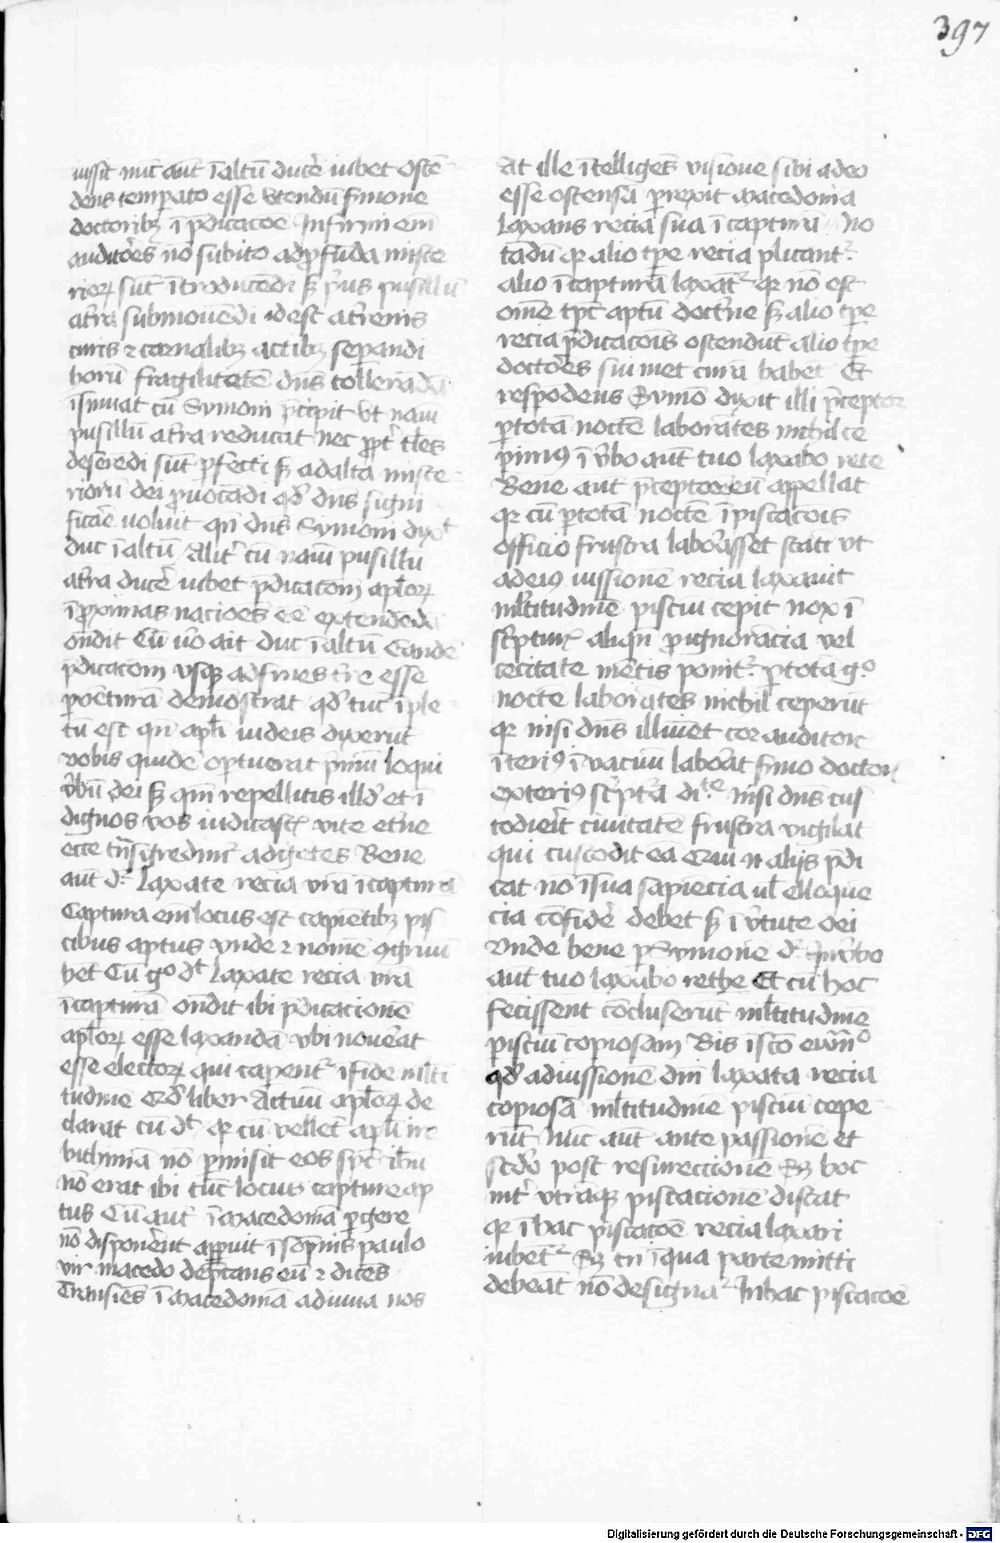 397
iussit nūc aūt ī altū ducẽ iubet ostē
dens temp̱ato esse vtendū s̃mone
doctoribꝫ ī p̄dicacōe Infirmi em̄
auditōes nō subito ad ꝓfūda miste
rioꝝ sūt ītroducēdi sꝫ p̱us pusillū
a t̄ra submouēdi idest a t̄renis
curis ⁊ carnalibꝫ actibꝫ sepandi
horū fragilitatē dn̄s tollerādā
īsinuat cū Symoni p̄cipit vt nauī
pusillū a t̄ra reducat nec ꝓpt̄ tl̄es
deserēdi sūt ꝑfecti sꝫ ad alta miste
riorū dei ꝓuocādi qd̄ dn̄s signi
ficar̄e voluit qn̄ dn̄s Symoni dyxͭ
duc ī altū Alit̄ cū nauī pusillū
a t̄ra ducẽ iubet p̄dicacōm apl̄oꝝ
ī ꝓximas nacioēs eē extendēdā
ondit Cū v̄o ait duc ī altū Eandē
p̄dicacōm vsqꝫ ad fines t̄re esse
portturā demōstrat qd̄ tūc īple
tū est qn̄ apl̄i iudeis dyxerūt
vobis quidē oportuerat p̄mū loqui
v̄bū dei sꝫ qm̄ repellitis illd̄ et ī
dignos vos iudicastꝭ vite et̄ne
ecce tn̄sgredimͬ ad gētes Bene
aūt dͬ Laxate recia vr̄a ī capturā
Captura em̄ locus est capiētibꝫ pis
cibus aptus vnde ⁊ nomē ꝯgruū
het Cū gͦ dͭ laxate recia vr̄a
ī capturā ondit ibi p̄dicacionē
apl̄oꝝ esse laxandā vbi nou̇at
esse electoꝝ qui capentͬ ī fide mlti
tudinē Qd̄ liber Actuū apl̄oꝝ de
clarat cū dͭ qꝛ cū vellēt apl̄i ire
bithiniā nō ꝑmisit eos sp̄c ih̄u
nō erat ibi tūc locus capture ap
tus Cū aūt ī Macedoniā pgere
nō disponeret apparuit ī sōpnis paulo
vir macedo dep̄cans eū ⁊ dicēs
Transiēs ī Macedoniā adiuua nos
At ille ītelligēs visione sibi a deo
esse ostensā p̱rexit Macedoniā
Laxans recia sua ī capturā No
tādū qꝛ alio tp̄e recia plicantͬ
alio ī capturā laxātͬ qꝛ nō est
om̄e tp̄c aptū doctr̄ne sꝫ alio tp̄e
recia p̄dicacois ostendūt alio tp̄e
doctōes sui met curā habēt Et
respōdens Symō dyxit illi p̄ceptor
ꝑ totā noctē laborātes nichil ce
pimꝰ ī v̄bo aūt tuo laxabo rete
Bene aūt p̄ceptorē eū appellat
qꝛ cū ꝑ totā noctē ī piscacois
officio frustra laborasset stati vt
ad eiꝰ iussionē recia laxauit
ml̄titudinē pisciū cepit nox ī
sc̄ptuͬ aliqn̄ ꝓ ignorācia vel
cecitate mētis ponitͬ ꝑ tota gͦ
nocte laborātes nichil ceperūt
qꝛ nisi dn̄s illuīet cor auditor
īteriꝰ ī vacuū laborat s̃mo doctor
exteriꝰ sc̄pt̄a diͭᵉ nisi dn̄s cus
todierit ciuitatē frustra vigilat
qui custodit ea Qui n̄ alijs p̄di
cat nō ī sua sapiēcia ul̄ elloque
cia cōfidẽ debet sꝫ ī v̄tute dei
Vnde bene p̱ Symone dͬ In v̄bo
aūt tuo laxabo rethe Et cū hoc
fecissent cōcluserūt ml̄titudinē
pisciū copiosam Bis ī sc̄o ewnͦ
qd̄ ad iussionē dn̄i laxata recia
copiosā ml̄titudinē pisciū cepe
rūt Nūc aūt ante passionē et
scd̄o post resurreccionē Sꝫ hoc
int̄ vtrāqꝫ piscacionē distat
qꝛ ī hac piscacōe recia laxari
iubētͬ Sꝫ tn̄ ī qua parte mitti
debeāt nō designaͬ In hac piscacōe
Digitalisierung gefördert durch die Deutsche Forschungsgemeinschaft - DFG